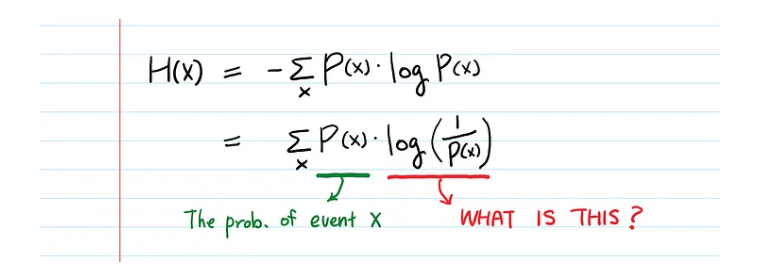 H(x) = -∑ₓ P(x) · log P(x)
= ∑ₓ P(x) · log(1/P(x))
The prob. of event X WHAT IS THIS?